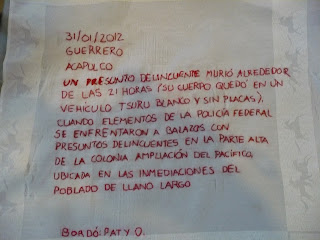 31/01/2012
GUERRERO
ACAPULCO
UN PRESUNTO DELINCUENTE MURIÓ ALREDEDOR
DE LAS 21 HORAS (SU CUERPO QUEDÓ EN UN
VEHÍCULO TSURU BLANCO Y SIN PLACAS),
CUANDO ELEMENTOS DE LA POLICÍA FEDERAL
SE ENFRENTARON A BALAZOS CON
PRESUNTOS DELINCUENTES EN LA PARTE ALTA
DE LA COLONIA AMPLIACIÓN DEL PACÍFICO,
UBICADA EN LAS INMEDIACIONES DEL
POBLADO DE LLANO LARGO
BORDÓ: PATY O.